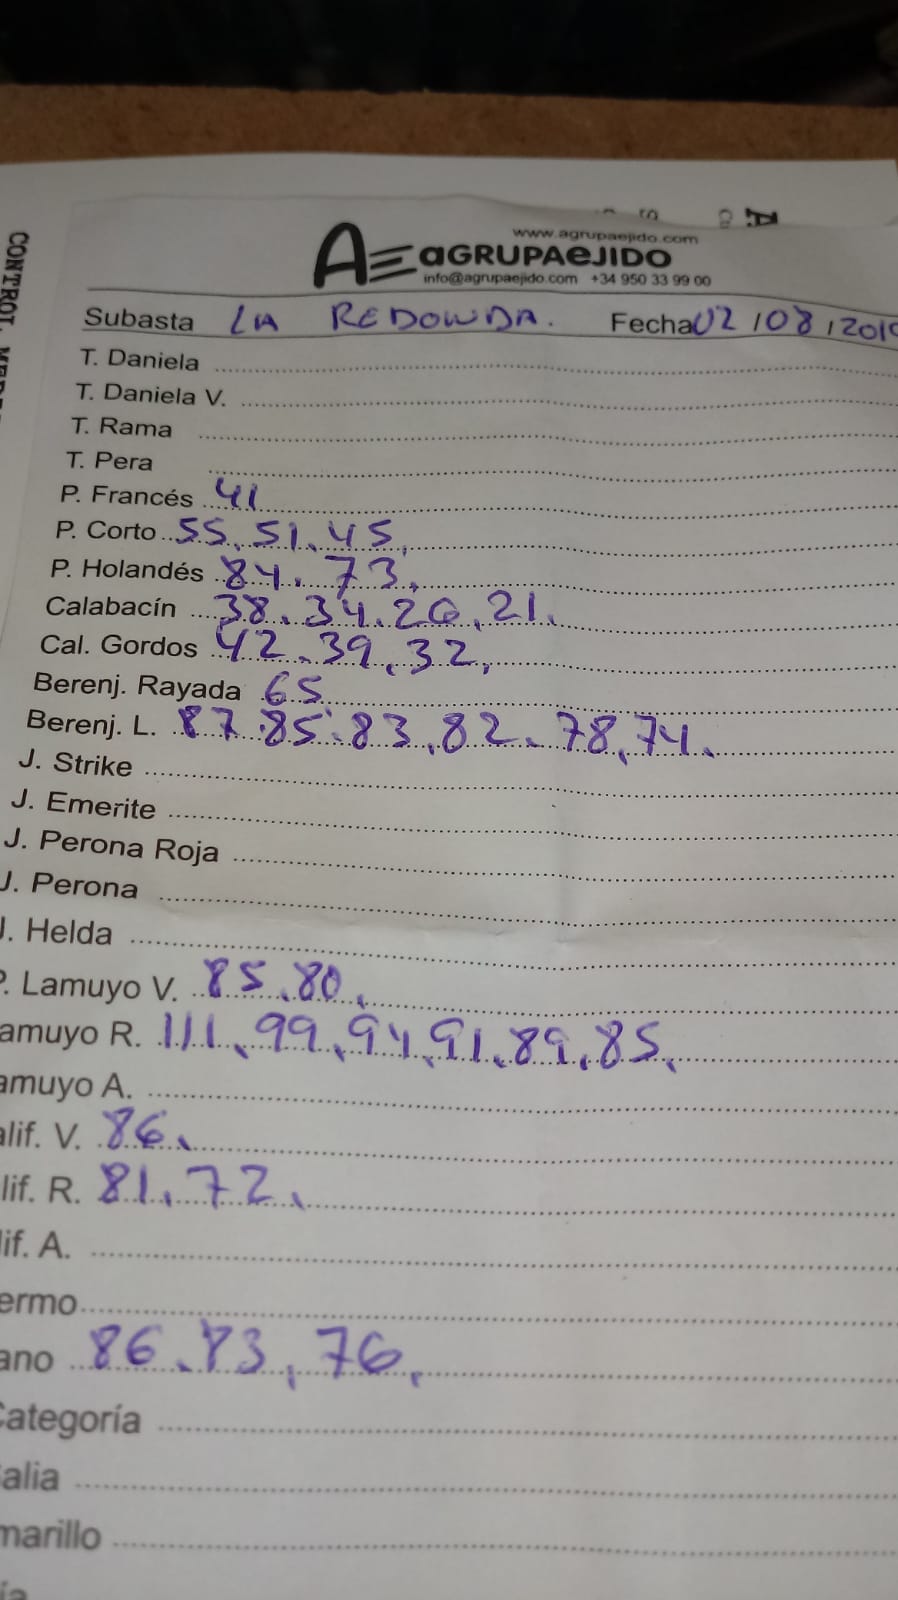 www.agrupaejido.com
AGRUPAEJIDO
info@agrupaejido.com +34 950 33 99 00
Subasta LA REDONDA. Fecha 02/08/2019
T. Daniela
T. Daniela V.
T. Rama
T. Pera
P. Francés 41
P. Corto 55, 51, 45,
P. Holandés 84, 73,
Calabacín 38, 34, 26, 21.
Cal. Gordos 42, 39, 32,
Berenj. Rayada 65
Berenj. L. 87, 85, 83, 82, 78, 74,
J. Strike
J. Emerite
J. Perona Roja
J. Perona
J. Helda
P. Lamuyo V. 85, 80,
amuyo R. 111, 99, 94, 91, 89, 85,
amuyo A.
alif. V. 86,
lif. R. 81, 72,
lif. A.
ermo
ano 86, 83, 76,
Categoría
alia
marillo
CONTROL